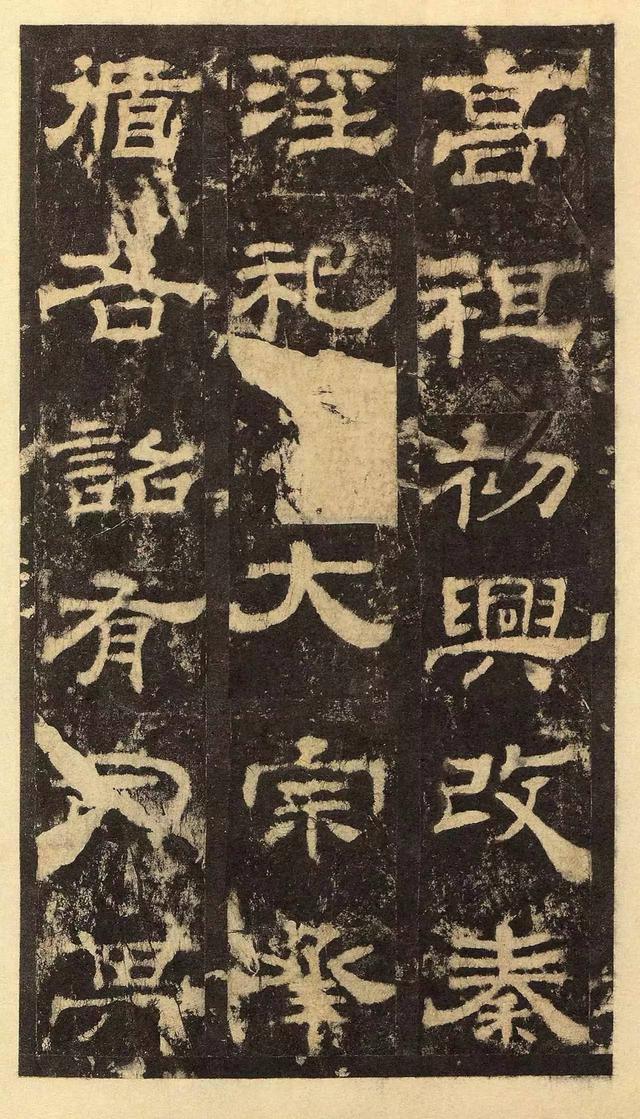 高祖初興改秦
淫祀大宗承
循各詔有司其